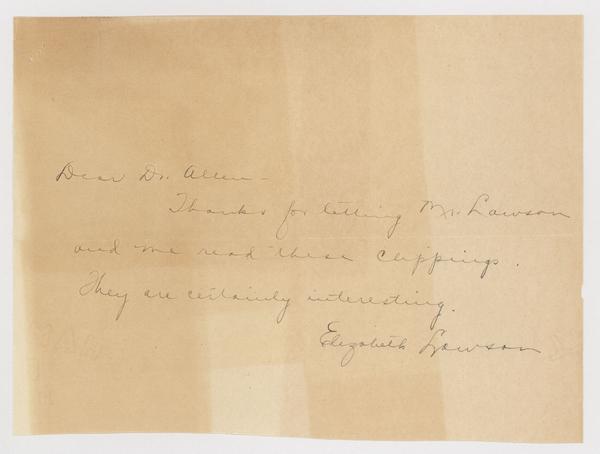 Dear Dr. Allen -
Thanks for letting Mr. Lawson
and me read these clippings.
They are certainly interesting.
Elizabeth Lawson